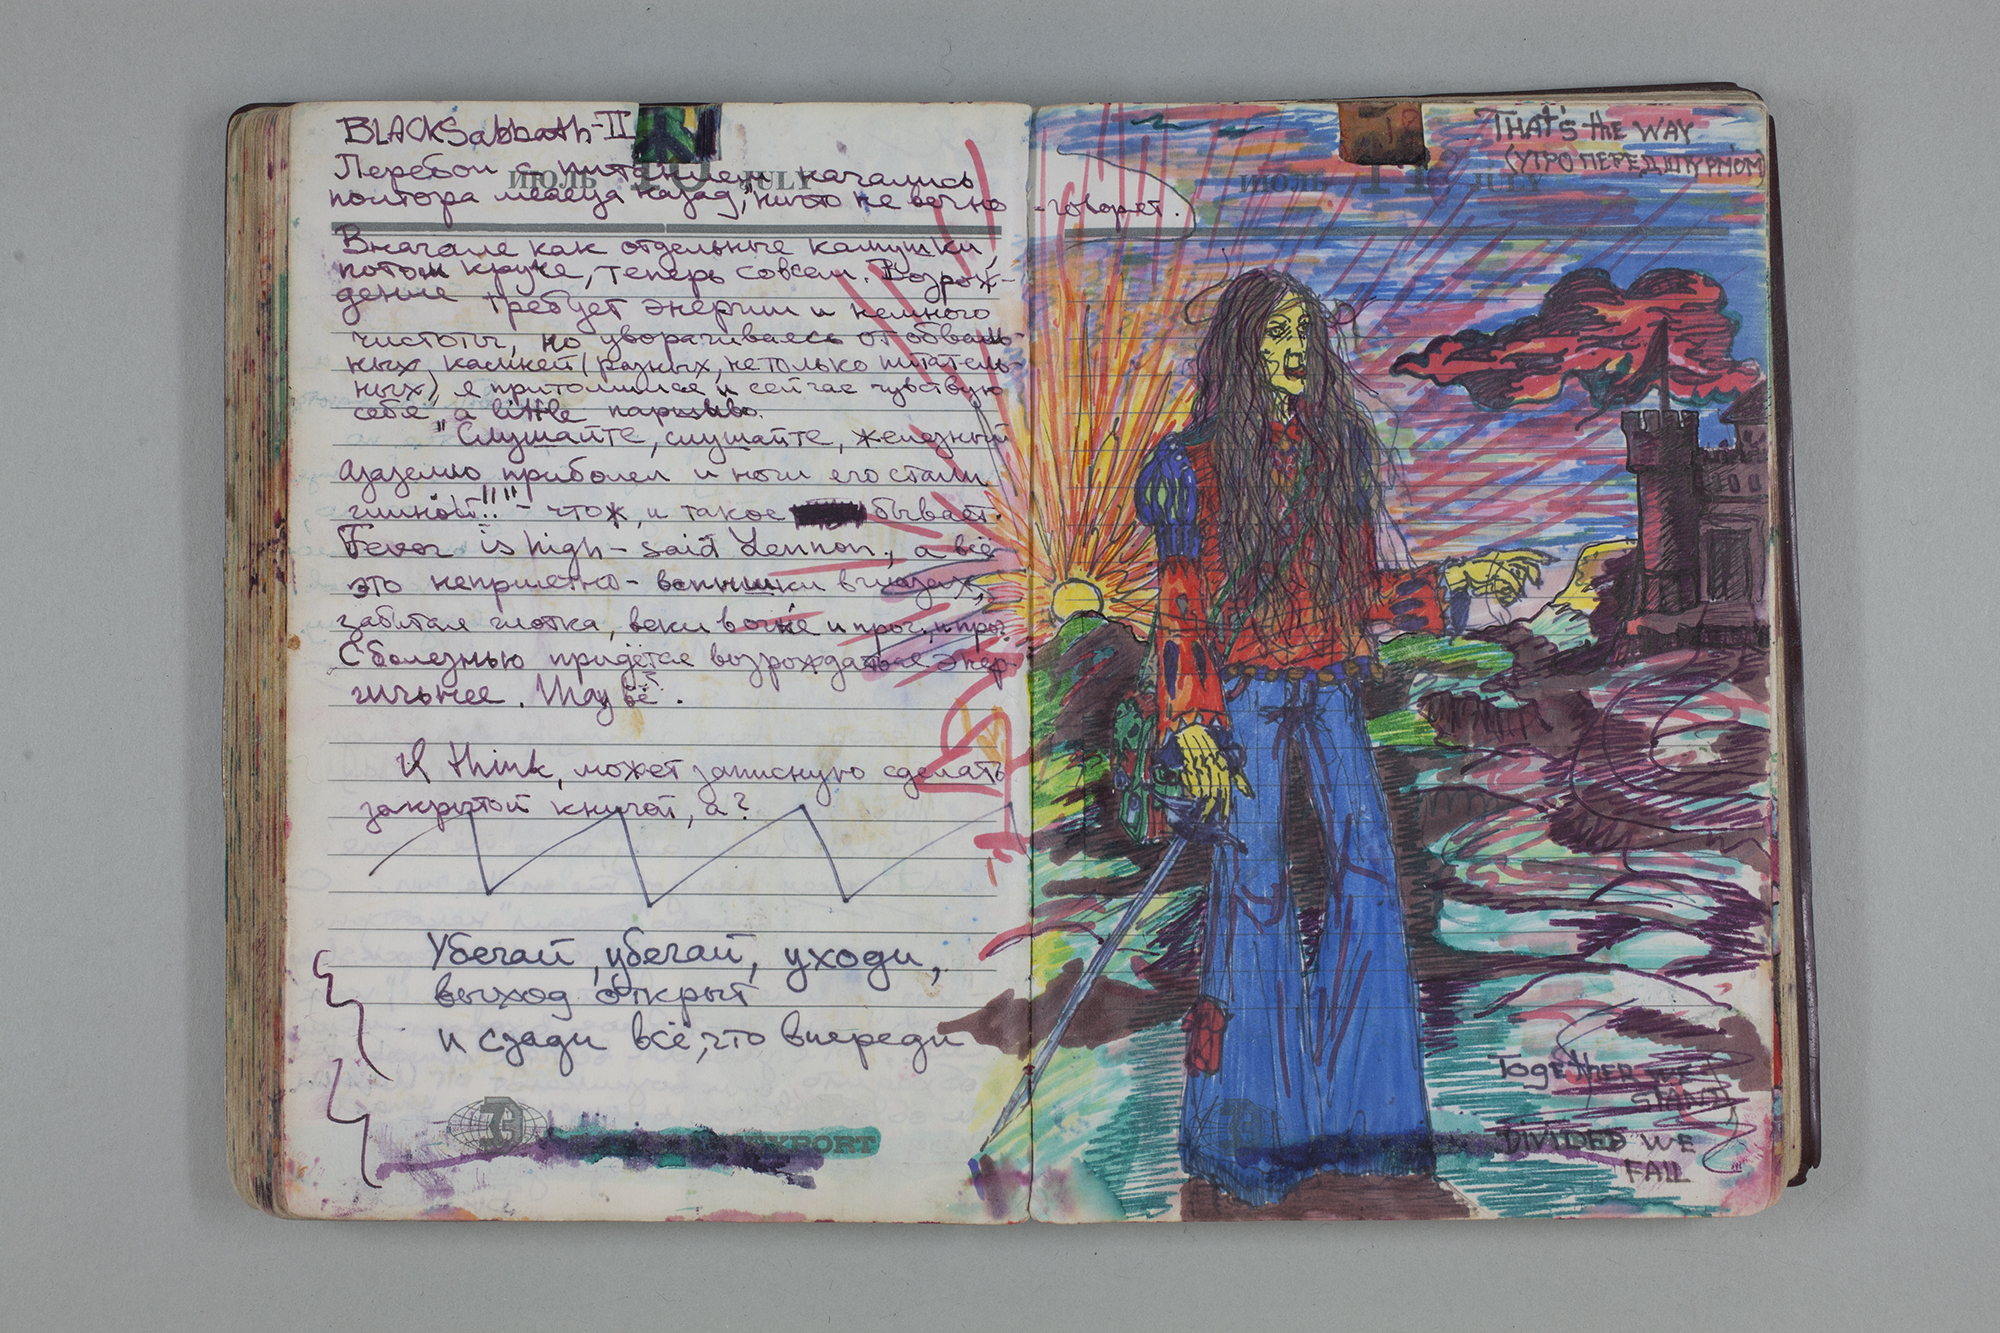 BLACK Sabbath-II
Перебои с питанием начались
ИЮЛЬ 10 JULY
полтора месяца назад, "ничто не вечно
-говорят.
Вначале как отдельные камушки,
потом круче, теперь совсем. Возрож-
дение требует энергии и немного
чистоты, но уворачиваясь от обваль-
ных камней (разных, не только питатель-
ных), я притомился и сейчас чувствую
себя a little паршиво.
"Слушайте, слушайте, железный
приболел и ноги его стали
глиной!!" - чтож, и такое бывает.
Fever is high - said Lennon, а всё
это неприятно - вспышки в глазах,
забитая глотка, веки в огне и проч. и проч.
С болезнью придётся возрождаться энер-
гичнее. May be.
I think, может записную сделать
закрытой книгой, а?
Убегай, убегай, уходи,
выход открыт
и сзади всё, что впереди
EXPORT
THAT'S the WAY
(УТРО ПЕРЕД ШТУРМОМ)
ИЮЛЬ 11 JULY
TOGETHER WE
STAND
DIVIDED WE
FALL